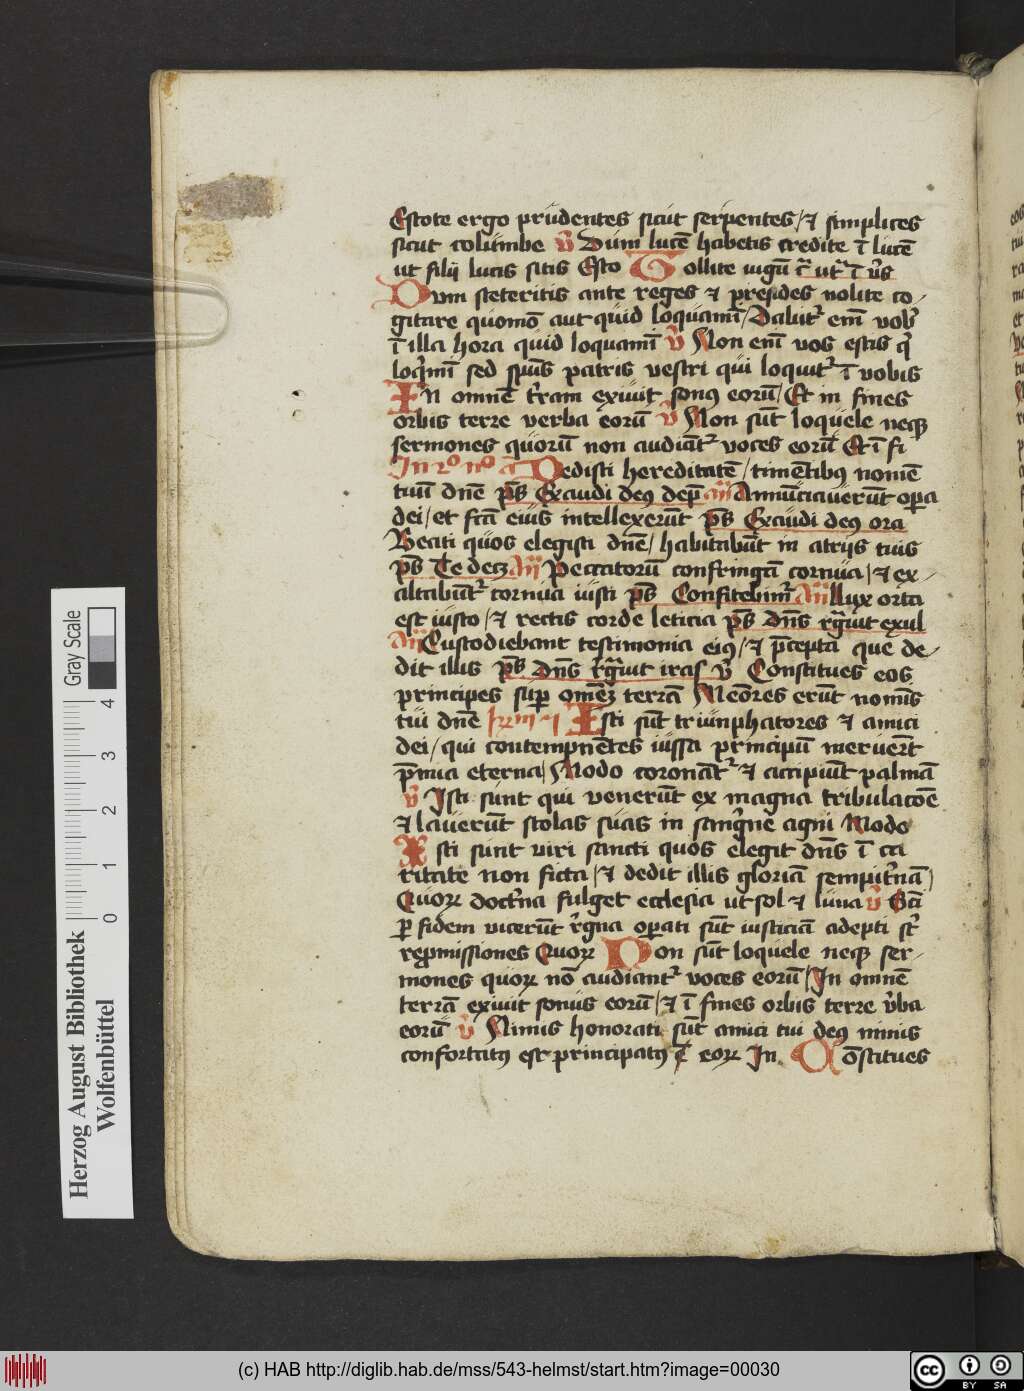 Estote ergo prudentes sicut serpentes / et simplices
sicut columbe v̄ Dum lucē habetis credite ī lucē
ut filij lucis sitis Esto Tollite iugū
Dum steteritis ante reges et presides nolite co-
gitare quomō aut quid loquamī / Dabit᷑ em̄ vob᷑
ī illa hora quid loquamī v̄ Non em̄ vos estis q̄
loq̄mī sed spūs patris vestri qui loquit᷑ ī vobis
In omnē t̄ram exiuit sonꝰ eorū / Et in fines
orbis terre verba eorū v̄ Non sūt loquele neqꝫ
sermones quorū non audiāt᷑ voces eorū Et ī fi
In ro no a Dedisti hereditatē / timētibꝰ nomē
tuū dn̄e ps̄ Exaudi deꝰ dep̄ an̄ Annūciauerūt oꝑa
dei / et fcā eius intellexerūt ps̄ Exaudi deꝰ ora
Beati quos elegisti dn̄e / habitabūt in atrijs tuis
ps̄ Te decꝫ an̄ Peccatorū confringā cornua / et ex-
altabūt᷑ cornua iusti ps̄ Confitebim᷑ an̄ Lux orta
est iusto / et rectis corde leticia ps̄ dn̄s rḡuit exul
an̄ Custodiebant testimonia eiꝰ / et p̄cepta que de-
dit illis ps̄ dn̄s rḡuit iras v̄ Constitues eos
principes suꝑ omēꝫ terrā Mēores erūt nomīs
tui dn̄e Isti sūt triumphatores et amici
dei / qui contempnētes iussa principū meruer̄t
p̄mia eterna / Modo coronāt᷑ et accipiūt palmā
v̄ Isti sunt qui venerūt ex magna tribulacōe
et lauerūt stolas suas in sanḡne agni Modo
Isti sunt viri sancti quos elegit dn̄s ī ca
ritate non ficta / et dedit illis gloriā sempit̄nā /
Quoꝝ doct̄na fulget ecclesia ut sol et luna v̄ Scī
ꝑ fidem vicerūt r̄gna oꝑati sūt iusticiā adepti st̄
repmissiones Quoꝝ Non sūt loquele neqꝫ ser-
mones quoꝝ nō audiant᷑ voces eorū / In omnē
terrā exiuit sonus eorū / et ī fines orbis terre v̄ba
eorū v̄ Nimis honorati sūt amici tui deꝰ nimis
confortatꝰ est principatꝰ eoꝝ In Cōstitues
Herzog August Bibliothek
Wolfenbüttel
Gray Scale
0 1 2 3 4
(c) HAB http://diglib.hab.de/mss/543-helmst/start.htm?image=00030
cc BY SA